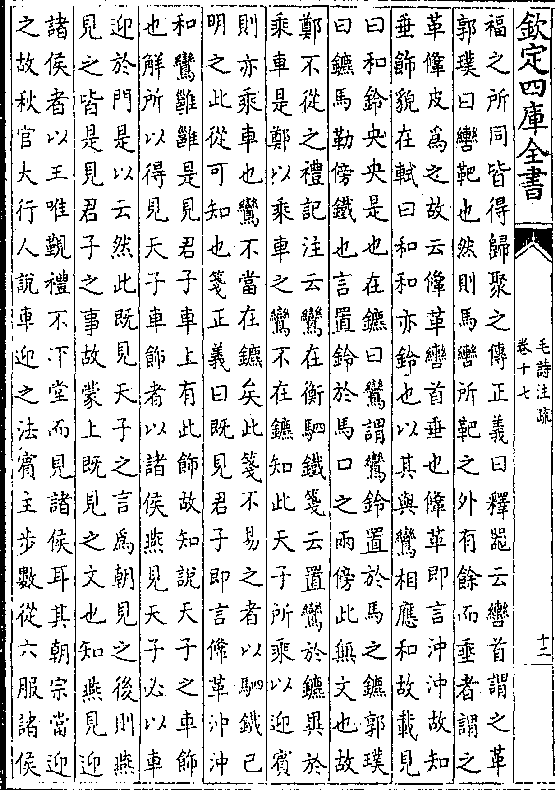 欽定四庫全書
毛詩注疏
卷十七
十二
福之所同皆得歸聚之傳正義曰釋器云轡首謂之革
郭璞曰轡靶也然則馬轡所靶之外有餘而垂者謂之
革鞗皮為之故云鞗革轡首垂也鞗革即言沖沖故知
垂飾貌在軾曰和和亦鈴也以其與鸞相應和故載見
曰和鈴央央是也在鑣曰鸞謂鸞鈴置於馬之鑣郭璞
曰鑣馬勒傍鐵也言置鈴於馬口之兩傍此無文也故
鄭不從之禮記注云鸞在衡駟鐵箋云置鸞於鑣異於
乘車是鄭以乘車之鸞不在鑣知此天子所乘以迎賓
則亦乘車也鸞不當在鑣矣此箋不易之者以駟鐵已
明之此從可知也箋正義曰既見君子即言鞗革沖沖
和鸞雝雝是見君子車上有此飾故知說天子之車飾
也解所以得見天子車飾者以諸侯燕見天子必以車
迎於門是以云然此既見天子之言為朝見之後則燕
見之皆是見君子之事故蒙上既見之文也知燕見迎
諸侯者以王唯覲禮不下堂而見諸侯耳其朝宗當迎
之故秋官大行人說車迎之法賓主步數從六服諸侯